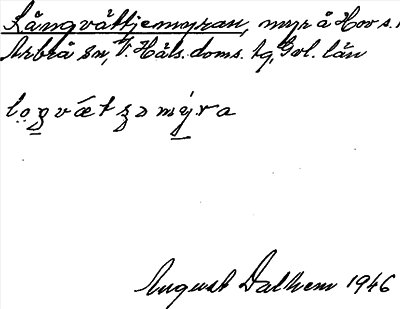 Långvåttjemyran, myr å Hov s.
Arbrå sn, V. Häls. doms. tg, Gvl. län
lo̤ŋvǽtʂəmýra
August Dalhem 1946